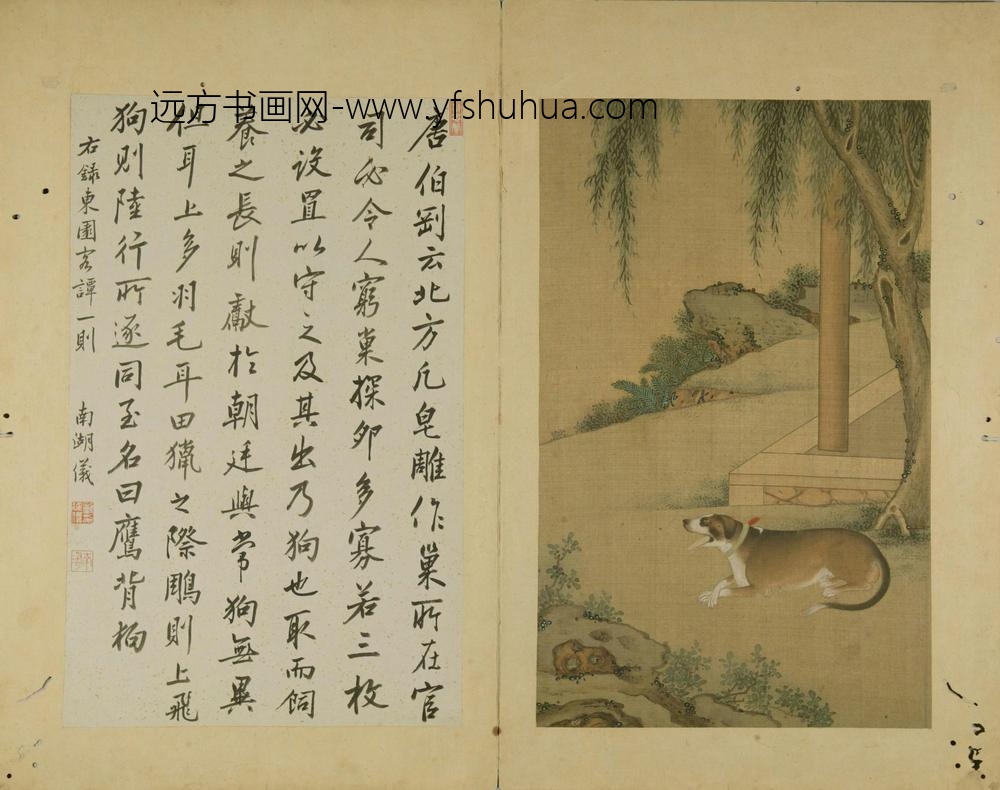 远方书画网-www.yfshuhua.com
唐伯剛云北方凡皂雕作巢所在官
司必令人窮巢探卵多寡若三枚
必設置以守之及其出乃狗也取而飼
養之長則獻於朝廷與常狗無異
但耳上多羽毛耳田獵之際鵰則上飛
狗則陸行所逐同至名曰鷹背狗
右錄東園客譚一則
南湖儀